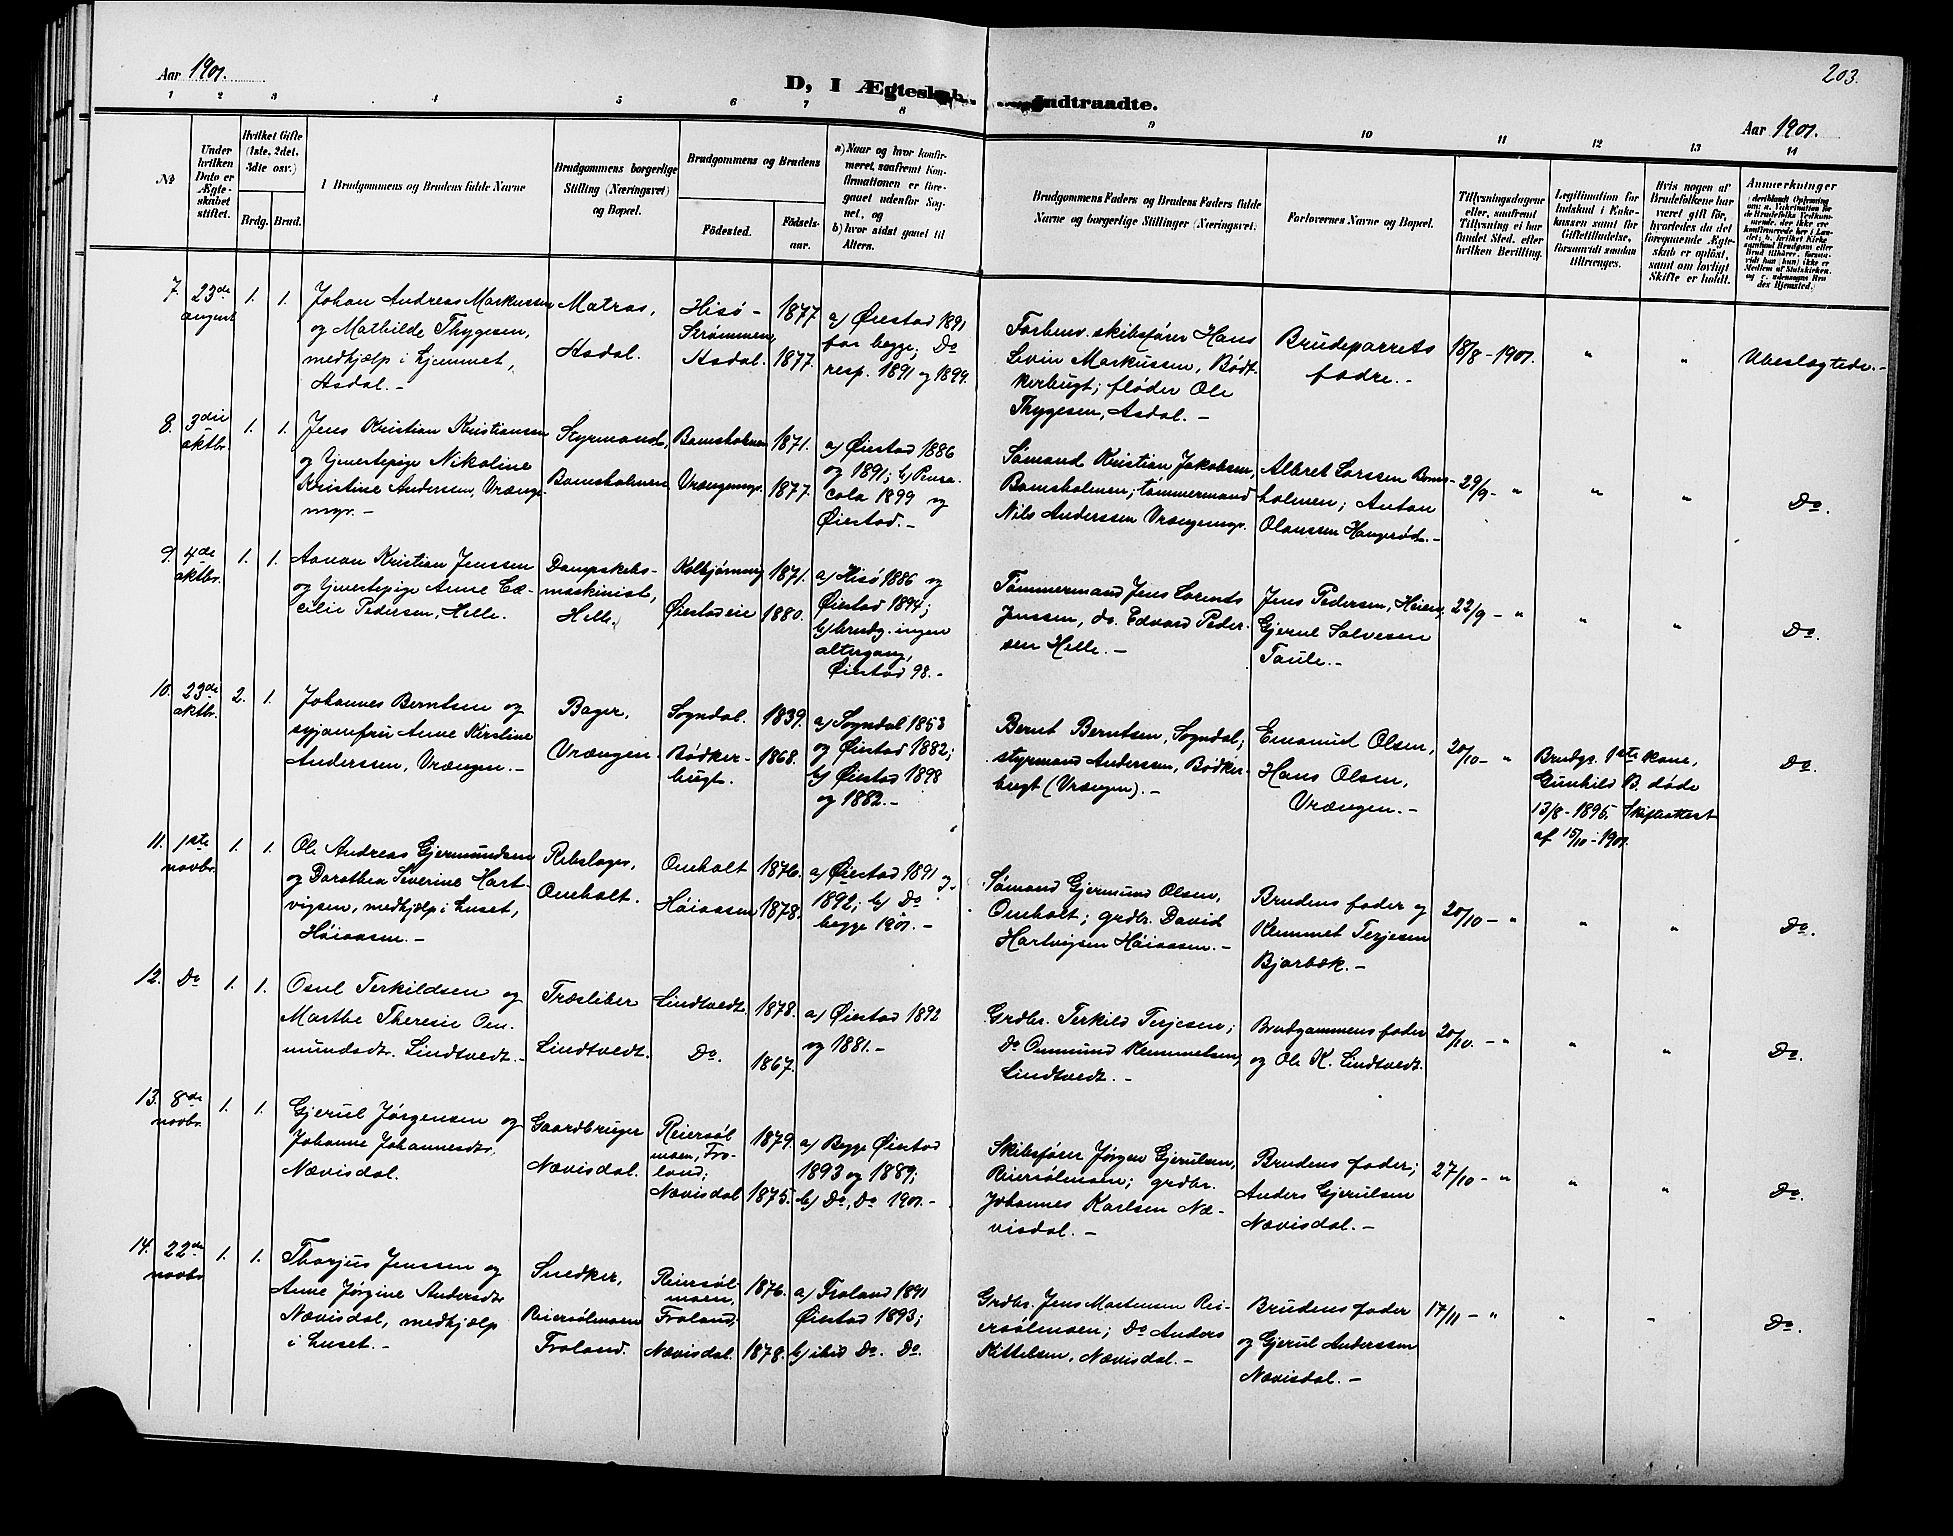 Aar 1901.
D, I Ægteskab Indtraadte.
203.
Aar 1901.
1 2 3 4 5 6 7 8 9 10 11 12 13 14
No
Under
hvilken
Dato er
Ægte-
skabet
stiftet.
Hvilket Gifte
(1ste, 2det,
3dte osv.)
Brdg. Brud.
Brudgommens og Brudens fulde Navne
Brudgommens borgerlige
Stilling (Næringsvei)
og Bopæl.
Brudgommens og Brudens
Fødested.
Fødsels-
aar.
a) Naar og hvor konfir-
meret, saafremt Kon-
firmationen er fore-
gaaet udenfor Sog-
net, og
b) hvor sidst gaaet til
Alters.
Brudgommens Faders og Brudens Faders fulde
Navne og borgerlige Stillinger (Næringsvei).
Forlovernes Navne og Bopæl.
Tillysningsdagene
eller, saafremt
Tillysning ei har
fundet Sted, efter
hvilken Bevilling.
Legitimation for
Indskud i Enke-
kassen samt for
Giftetilladelse,
forsaavidt saadan
tiltrænges.
Hvis nogen af
Brudefolkene har
været gift før,
hvorledes da det
foregaaende Ægte-
skab er opløst,
samt om lovligt
Skifte er holdt.
Anmerkninger
7. 23de
august
1. 1.
Johan Andreas Markussen
og Mathilde Thygesen,
medhjælp i hjemmet,
Asdal. -
Matros,
Asdal.
Hisø -
Strømmen,
Asdal.
1877
1877.
a) Øiestad 1891
for begge, Do
resp. 1891 og 1899.
Forhenv. skibsfører Hans
Levin Markussen, Bødt-
kerbugt; fløder Ole
Thygesen, Asdal. -
Brudeparrets
fædre. -
18/8 - 1901. " "
Ubeslægtede. -
8. 3die
oktbr.
1. 1.
Jens Kristian Kristiansen
og tjenestepige Nikoline
Kristine Andersen, Vrænge-
myr. -
Styrmand,
Bomsholmen,
Bomsholmen
Vrængemyr.
1871.
1877.
a) Øiestad 1886
og 1891; b) Pensa-
cola 1899 og
Øiestad. -
Sømand Kristian Jakobsen,
Bomsholmen; tømmermand
Nils Anderssen Vrængemyr.
Albret Larssen Boms-
holmen; Anton
Olaussen Haugerød. -
29/9 - " " "
Do.
9. 4de
oktbr.
1. 1.
Aanon Kristian Jenssen
og tjenestepige Anne Cæ-
cilie Pedersen, Helle.
Dampskibs-
maskinist,
Helle,
Kolbjørnsvig
Øiestadeie
1871.
1880.
a) Hisø 1886 og
Øiestad 1894;
b) brudg. ingen
altergang,
Øiestad 98. -
Tømmermand Jens Lorents
Jenssen, do. Edvard Peder-
sen Helle. -
Jens Pedersen, Heien,
Gjerul Salvesen
Taule. -
22/9 - " " "
Do.
10. 23de
oktbr.
2. 1.
Johannes Berntsen og
syjomfru Anne Kirstine
Anderssen, Vrængen. -
Bager,
Vrængen
Sogndal.
Bødker-
bugt.
1839.
1868.
a) Sogndal 1853
og Øiestad 1882;
b) Øiestad 1898
og 1882. -
Bernt Berntsen, Sogndal;
styrmand Anderssen, Bødker-
bugt (Vrængen). -
Emanuel Olsen,
Hans Olsen,
Vrængen. -
20/10 - "
Brudgs. 1ste kone,
Gunhild B. døde
13/8 - 1895. Skifteattest
af 15/10 - 1901.
Do.
11. 1ste
novbr.
1. 1.
Ole Andreas Gjermundsen
og Dorothea Severine Hart-
vigsen, medhjælp i huset,
Høiaasen. -
Rebslager,
Omholt.
Omholt
Høiaasen
1876.
1878.
a) Øiestad 1891 og
1892; b) Do
begge 1901. -
Sømand Gjermund Olsen,
Omholt; grdbr. David
Hartvigsen Høiaasen. -
Brudens fader og
Kemmet Terjesen
Bjorbæk. -
20/10 - " " "
Do.
12. Do 1. 1.
Osul Terkildsen og
Marthe Theresie Om-
mundsdtr. Lindtvedt. -
Træsliber
Lindtvedt.
Lindtvedt.
Do.
1878.
1867.
a) Øiestad 1892
og 1881. -
Grdbr. Terkild Terjesen;
Do Ommund Kemmetsen,
Lindtvedt. -
Brudgommens fader
og Ole K. Lindtvedt.
20/10. - " " "
Do.
13. 8de
novbr.
1. 1.
Gjerul Jørgensen og
Johanne Johannesdtr.,
Nævisdal.
Gaardbruger
Nævisdal.
Reiersøl
moen, Fro-
land;
Nævisdal
1879.
1875.
a) Begge Øiestad
1893 og 1889;
b) Do, Do 1901. -
Skibsfører Jørgen Gjerulsen,
Reiersølmoen; grdbr.
Johannes Karlsen Næ-
visdal. -
Brudens fader;
Anders Gjerulsen
Nævisdal. -
27/10 - " " "
Do.
14. 22de
novbr.
1. 1.
Thorjus Jenssen og
Anne Jørgine Andersdtr
Nævisdal, medhjælp
i huset. -
Snedker,
Reiersølmoen
Froland.
Reiersøl-
moen,
Froland;
Nævisdal.
1876.
1878.
a) Froland 1891
Øiestad 1893;
b) ibid Do. Do.
Grdbr. Jens Mortensen Rei-
ersølmoen; Do Anders
Kittelsen, Nævisdal. -
Brudens fader
og Gjerul Anderssen
Nævisdal. -
17/11 - " " "
Do.